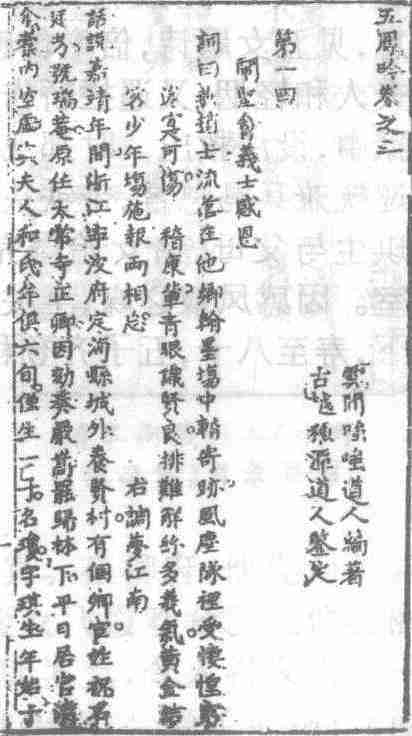 五鳳吟卷之一
雲間嗤嗤道人編著
古越道人鑒定
第一回
鬧聖會義士感恩
詞曰士流落在他鄉翰墨場中暫寄跡風塵隊裡受悽惶窮
途實可傷　稽康輩青眼識賢良排難解紛多義氣黃金結
客少年場施報兩相忘　　右調夢江南
話說嘉靖年間浙江寧波府定海縣城外養賢村有個鄉宦姓祝名
廷芳號瑞菴原任太常寺正卿因劾奏嚴嵩罷歸林下平日居官清
介囊內空虛與夫人和氏年俱六旬僅生一子名瓊字琪生年始十